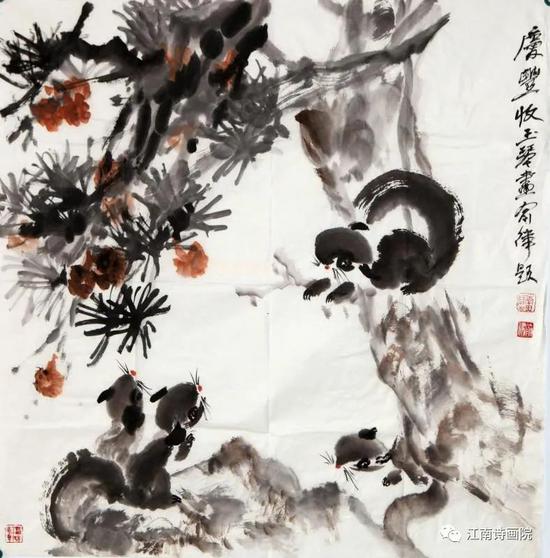 慶豐收玉琴畫俞律題
江南诗画院